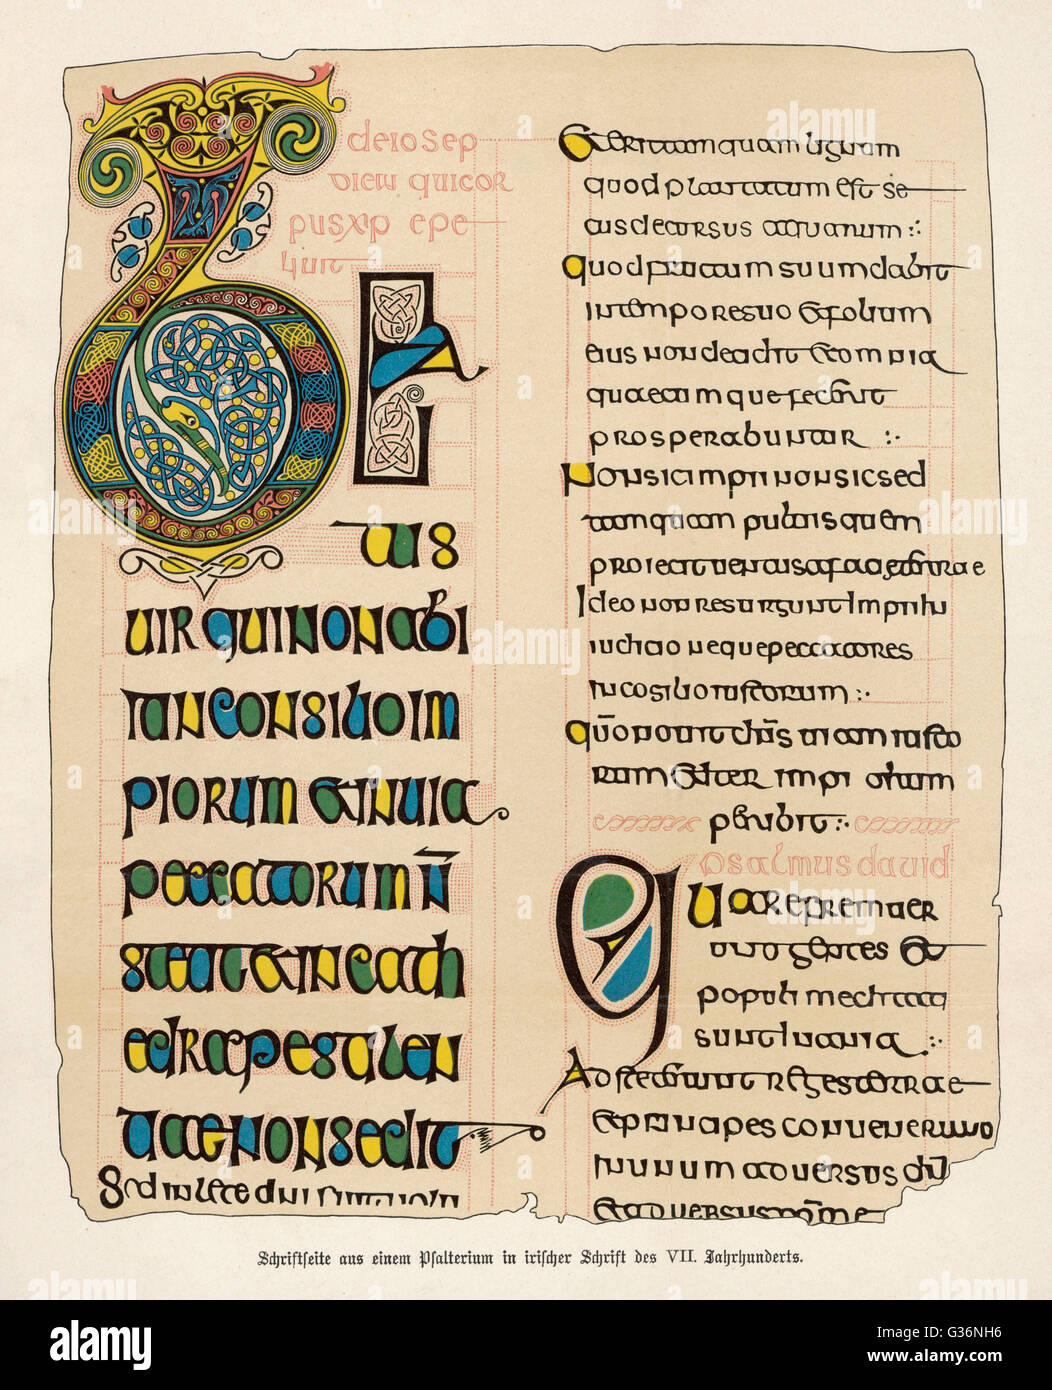 deiosep
quicor
pusxp epe
liuit
BE
atus
uir quinonabi
itinconsilioim
piorum &inuia
peccatorum n̄
stetit &incath
edrapestilen
tiaenonsedit
Sed inlege dni
Eteritamquam lignum
quodplantatum est se
cusdecursus aquarum :·
Quodfructum suumdabit
intemporesuo &folium
eius nondecidit &omnia
quaecumquefecerit
prosperabuntur :·
Nonsicimpii nonsicsed
tamquam puluisquem
proicituentusafaciaeterrae
Ideo nonresurguntimpiiin
iudicio nequepeccatores
incosilioiustorum :·
quōnouitdn̄suiamiusto
rum &iter impiorum
peribit :·
psalmusdauid
Quarefremuer
untgentes &
populi meditati
suntinania :·
Adsteteruntregesterrae
&principes conuenerunt
inunum aduersus dn̄
&aduersus
Schriftseite aus einem Psalterium in irischer Schrift des VII. Jahrhunderts.
alamy
Image ID: G36NH6
www.alamy.com